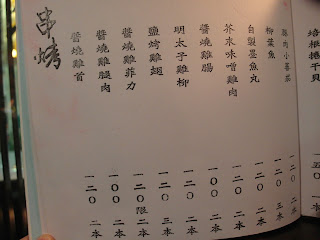 串烤
培根捲干貝 一五〇
肉小番茄 一二〇 二本
柳葉魚 一〇〇 三本
自製墨魚丸 一二〇 二本
芥末味噌雞肉 一二〇 二本
醬燒雞腸 一〇〇 二本
明太子雞柳 一二〇 二本
鹽烤雞翅 一二〇 三本
醬燒雞菲力 一二〇限 二本
醬燒雞腿肉 一〇〇 二本
醬燒雞首 一二〇 二本